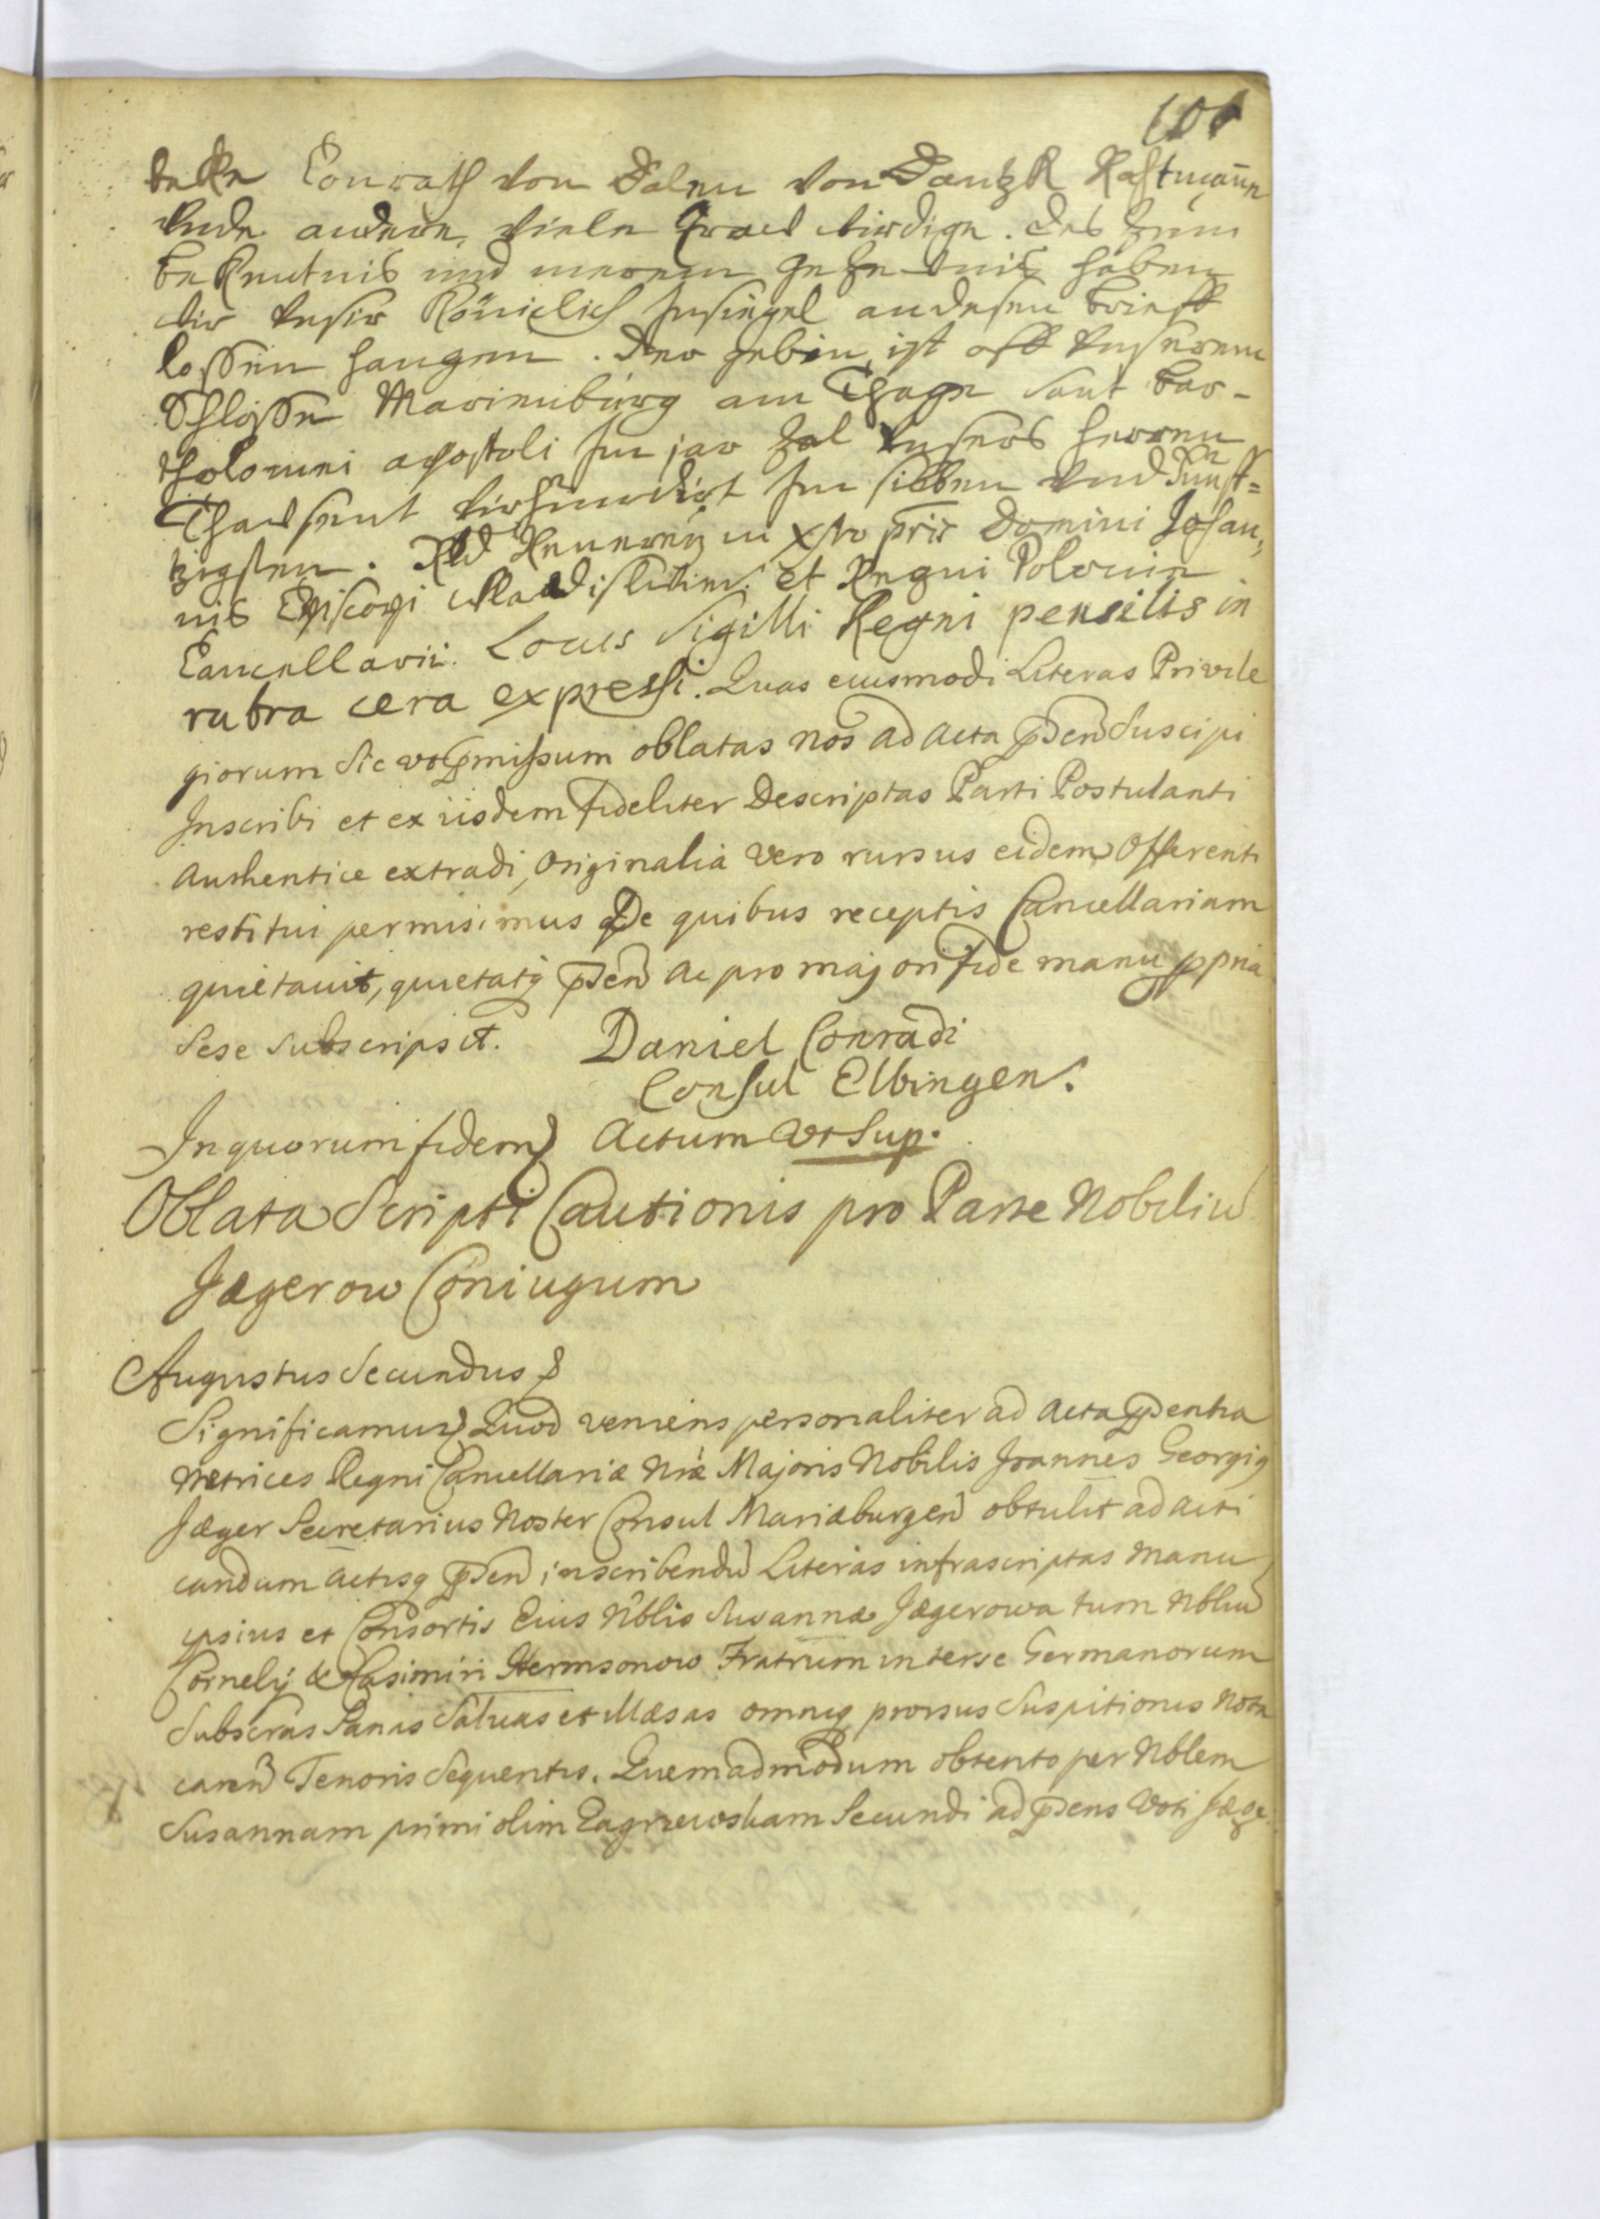 101
Conrath von Dalen von Dantzk Rathmanne
vnde andere viele Graes wirdige. Des zum
bekentnis und merem gezewnis haben
wir vnsir Köniclich Insiegel an desen brieff
lossen hangen. Der geben ist off vnserem
Schlosse Marienburg am Thage sant Bar-
tholomei apostoli Im jar zal vnsers herren
Thausent virhundirt Im sieben vnd funff=
tzigsten. Rld Reueren in Xsto pris Domini Johan,
nis Episcopi Wladislauien. et Regni Polonie
Cancellarii. Locus Sigilli Regni pensilis in
rubra cera expressi. Quas eiusmodi Literas Privile
giorum Sic vt pmissum oblatas nos ad acta pden suscipi
Inscribi et ex iisdem fideliter Descriptas Parti Postulanti
authentice extradi, originalia vero rursus eidem Offerenti
restitui permisimus De quibus receptis Cancellariam
quietauit, quietatq pden ac pro majori fide manu ppria
sese subscripsit. Daniel Conradi
Consul Elbingen.
In quorum fidem Actum vt sup.
Oblata Scripti Cautionis pro Parte Nobiliu
Jægerow Coniugum
Augustus Secundus
Significamus Quod veniens personaliter ad acta pdentia
Metrices Regni Cancellariæ Nræ Majoris Nobilis Joannes Georgig
Jæger Secretarius Noster Consul Mariæburgen obtulit ad acti
candum actisq pden inscribendu Literas infrascriptas manu
ipsius et Consortis Eius Nblis Susannæ Jægerowa tum Nbliu
Cornelij & Casimiri Hermsonow Fratrum inter se Germanorum
Subscras Sanas Saluas et Illæsas omniq prorsus Suspitionis nota
caren Tenoris Sequentis. Quemadmodum obtento per Nblem
Susannam primi olim Zagrzewskam Secundi ad pdens Voti Jæge